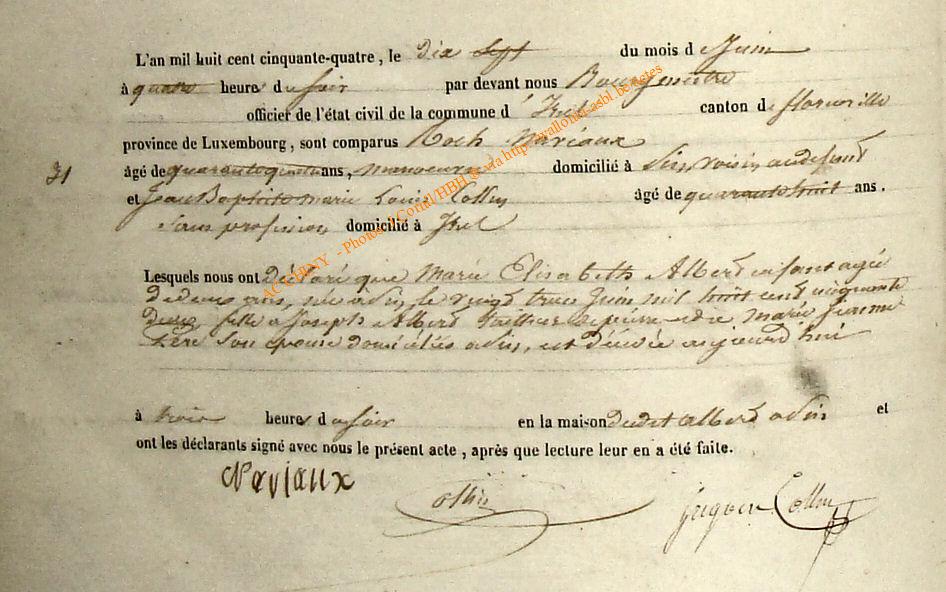 L'an mil huit cent cinquante-quatre, le dix sept du mois d e Juin
à quatre heure du soir par devant nous Bourgmestre
officier de l'état civil de la commune d' Izel canton d e florenville
province de Luxembourg, sont comparus Roch Mariaux
31 âgé de ans, manoeuvre domicilié à Pin, voisin au défunt
et Jean Baptiste marie Louis Collin âgé de quarante huit ans.
Sans profession domicilié à Izel
Lesquels nous ont Déclaré que Marie Elisabeth Albert enfant agée
de deux ans, née a Pin, le vingt trois Juin mil huit cent cinquante
deux fille a Joseph Albert tailleur de pierre et de Marie Jeanne
son epouse domiciliés a Pin, est décédée aujourd'hui
à trois heures d u soir en la maison dudit albert a Pin et
ont les déclarants signé avec nous le présent acte, après que lecture leur en a été faite.
Marjaux Collin Collin
AC CHINY - Photos J Cornu/HBH & via http://wallonia-asbl.be/actes